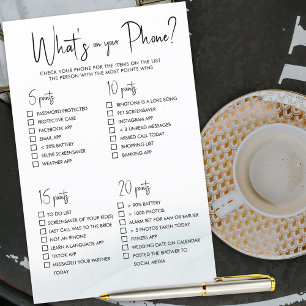 What's on your Phone?
CHECK YOUR PHONE FOR THE ITEMS ON THE LIST
THE PERSON WITH THE MOST POINTS WINS
5 points
PASSWORD PROTECTED
PROTECTIVE CASE
FACEBOOK APP
GMAIL APP
< 20% BATTERY
SELFIE SCREENSAVER
WEATHER APP
10 points
RINGTONE IS A LOVE SONG
PET SCREENSAVER
INSTAGRAM APP
< 3 UNREAD MESSAGES
MISSED CALLS TODAY
SHOPPING LIST
BANKING APP
15 points
TO DO LIST
SCREENSAVER OF YOUR KIDS
LAST CALL WAS TO THE BRIDE
NOT AN IPHONE
LEARN A LANGUAGE APP
TIKTOK APP
MESSAGED YOUR PARTNER
TODAY
20 points
> 90% BATTERY
> 1000 PHOTOS
ALARM SET FOR 6AM OR EARLIER
> 5 PHOTOS TAKEN TODAY
FITNESS APP
WEDDING DATE ON CALENDAR
POSTED THE SHOWER TO
SOCIAL MEDIA